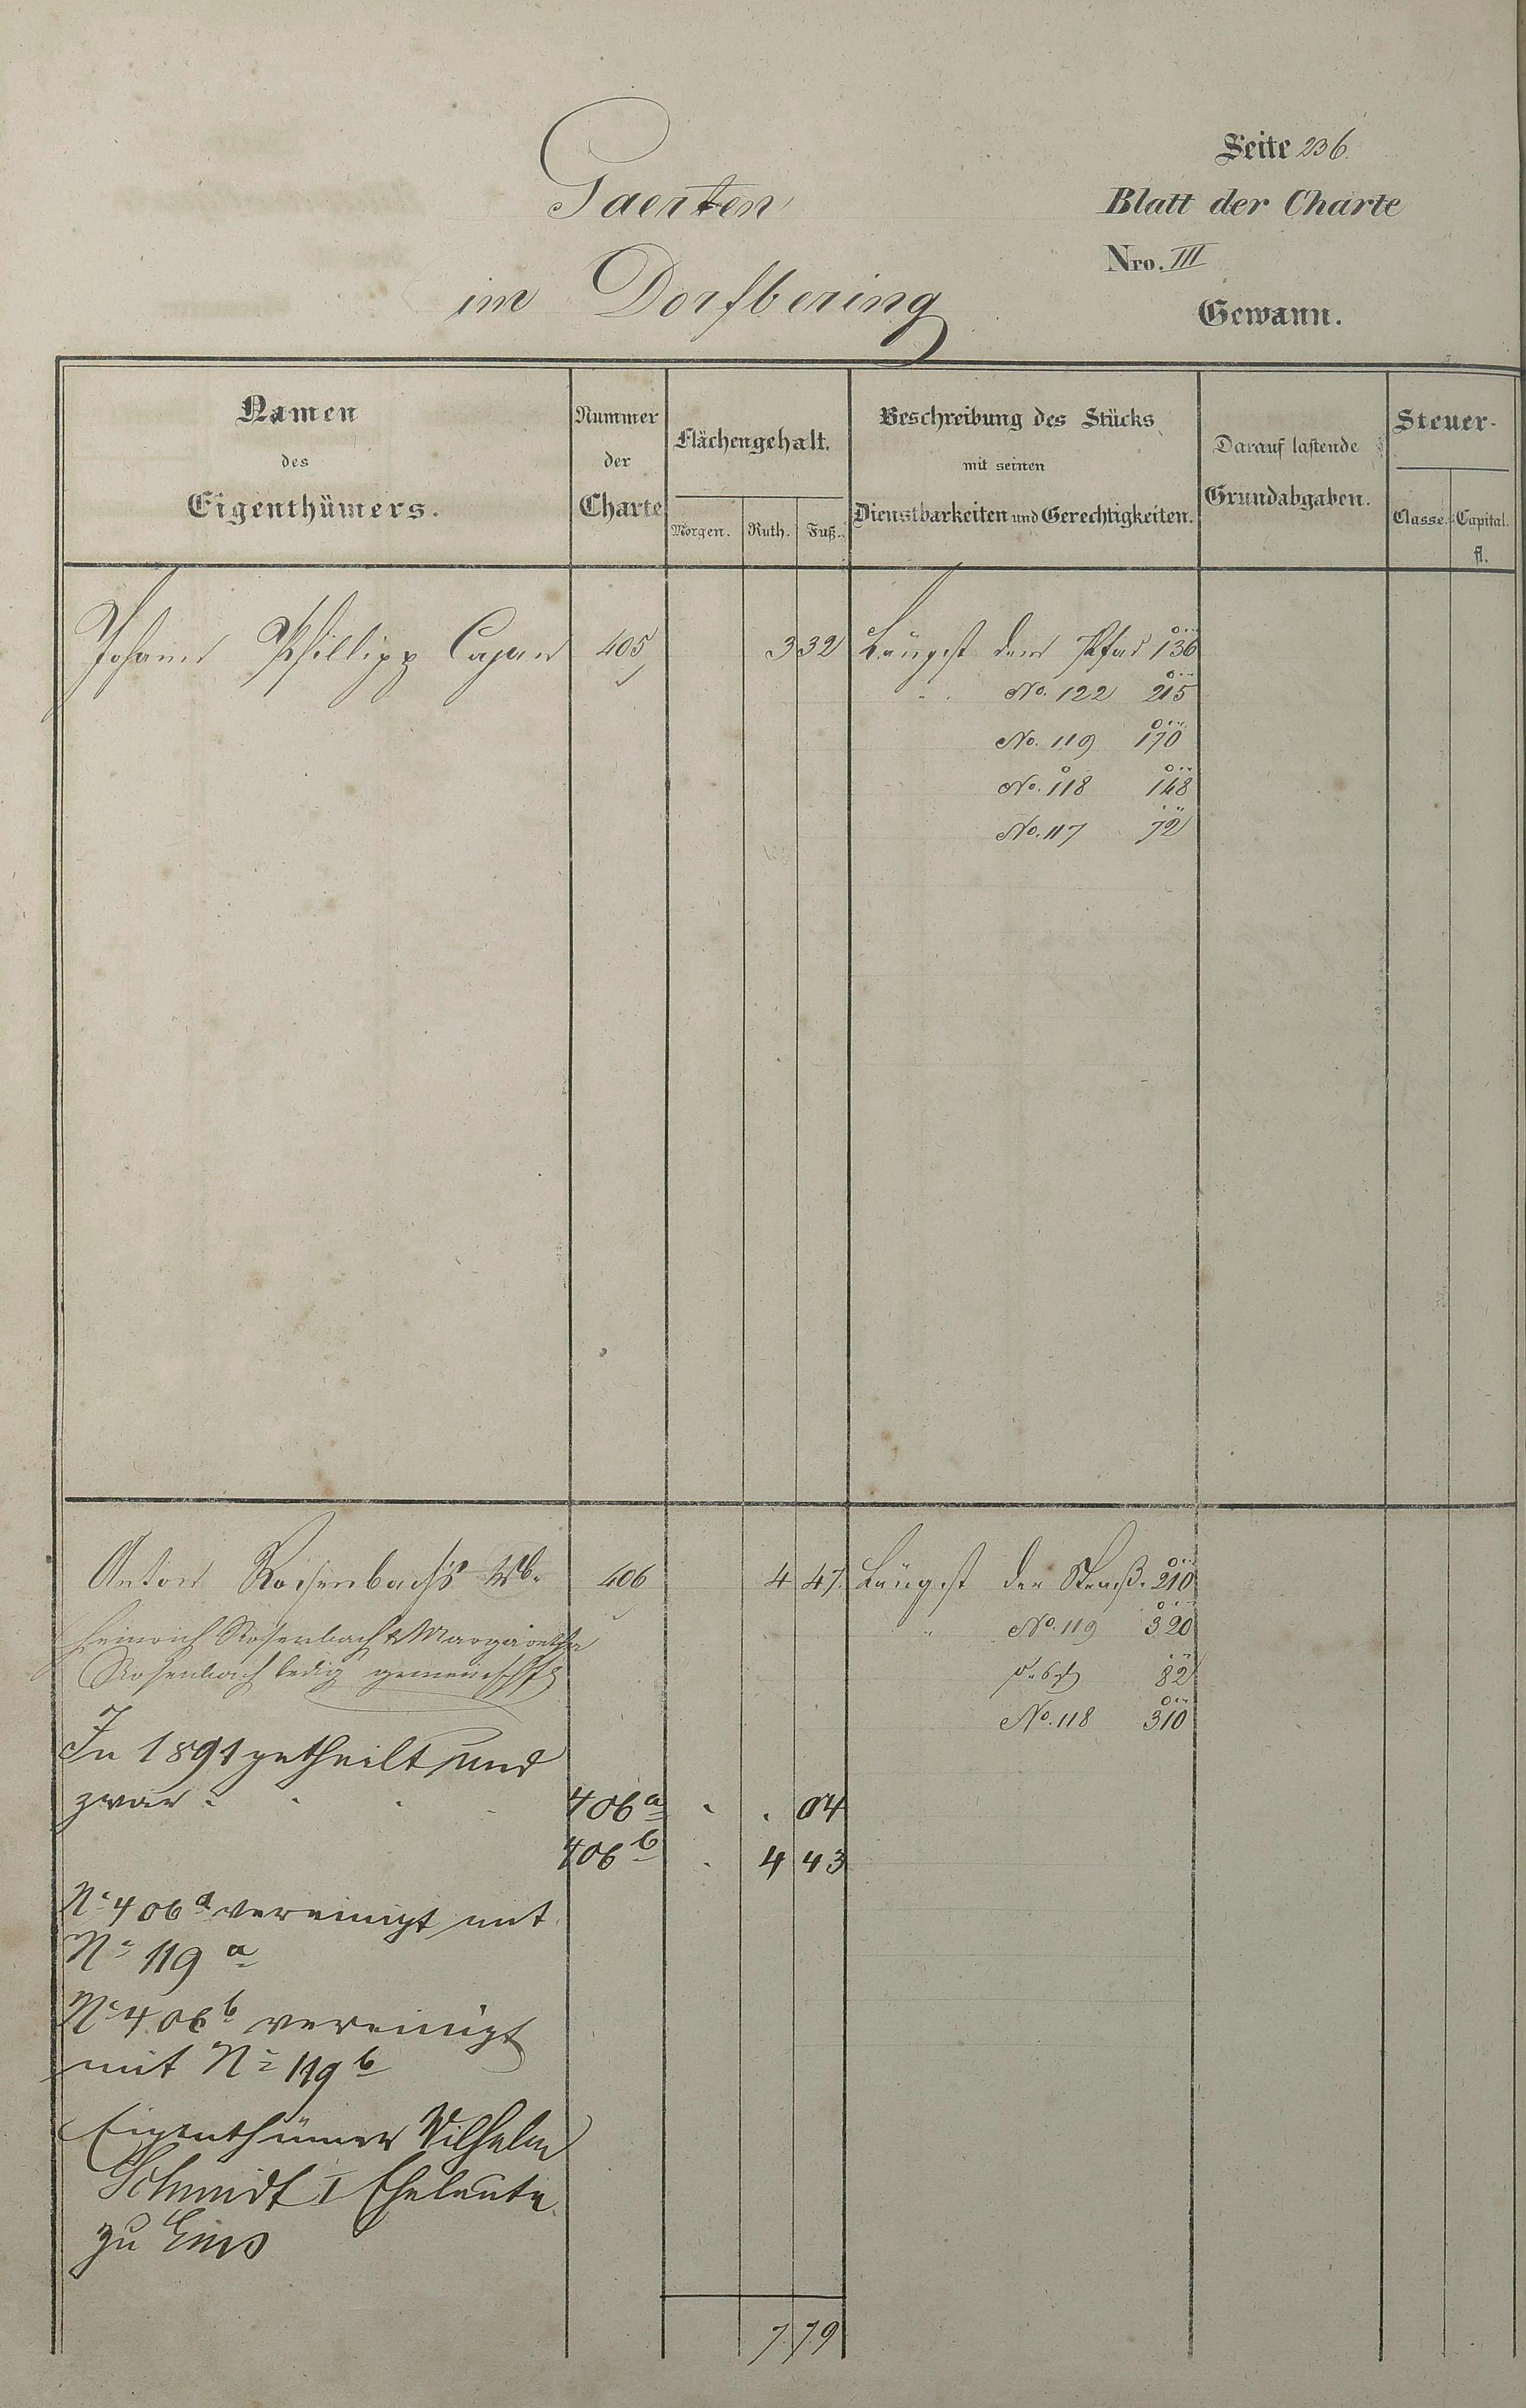 Seite 236.
Gaerten
Blatt der Charte
Nro. III
im Dorfbering
Gewann.
Namen des Eigenthümers.
Nummer der Charte
Flächengehalt.
Morgen. Ruth. Fuß.
Beschreibung des Stücks mit seinen Dienstbarkeiten und Gerechtigkeiten.
Darauf lastende Grundabgaben.
Steuer-
Classe. Capital. fl.
Johann Phillipp Cajan 405 3 32 Längst dem Pfad 136
" No. 122 215
No. 119 170
No. 118 148
No. 117 72
Anton Rosenbach's Wb. 406 4 47 Längst der Straß. 210
Heinrich Rosenbach & Margaretha " No. 119 320
Rosenbach ledig gemeinschftl 82
No. 118 310
In 1891 getheilt und
zwar: 406a . . 04
406b . 4 43
No 406a vereinigt mit
No 119a
No 406b vereinigt
mit No 119b
Eigenthümer Wilhelm
Schmidt I Eheleute
zu Ems
7 79